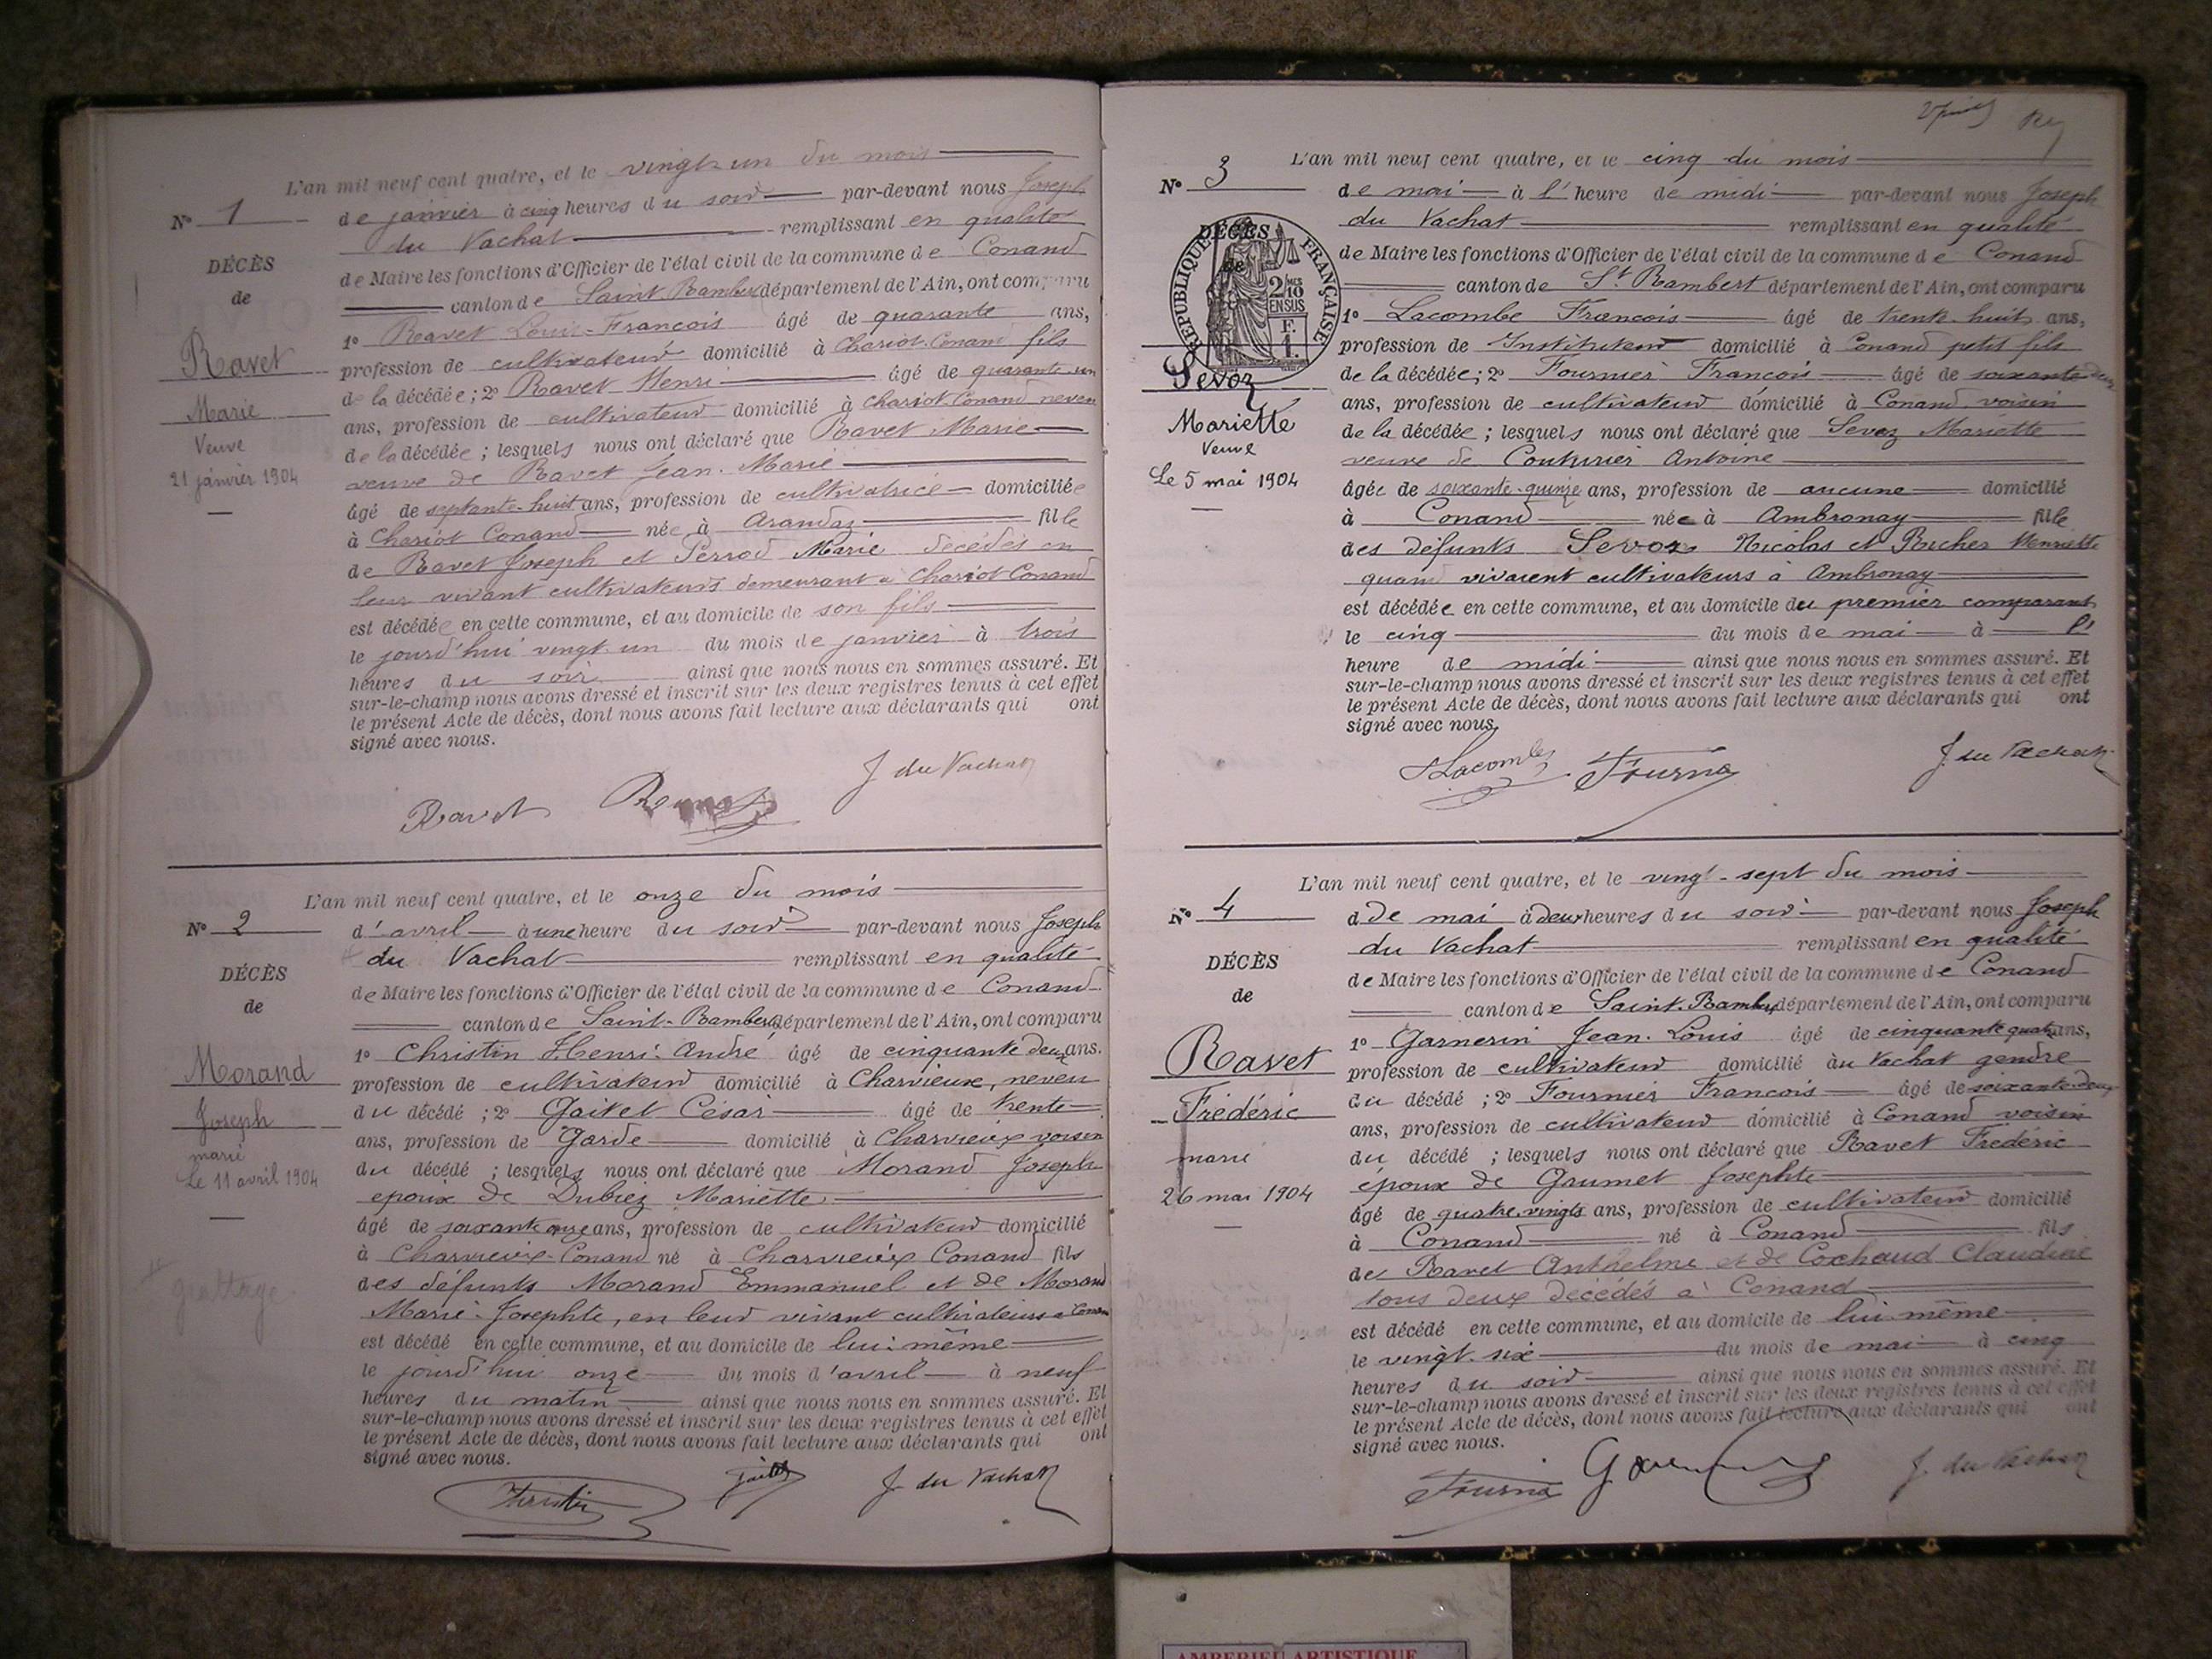 L'an mil neuf cent quatre, et le vingt-un du mois
N° 1
de janvier à cinq heures du soir par-devant nous Joseph
du Vachat remplissant en qualité
DÉCÈS
de Maire les fonctions d'Officier de l'état civil de la commune de Conand
de
canton de Saint Rambert département de l'Ain, ont comparu
1° Ravet Louis-François âgé de quarante ans,
Ravet
profession de cultivateur domicilié à Chariot-Conand fils
de la décédée ; 2° Ravet Henri âgé de quarante-un
Marie
ans, profession de cultivateur domicilié à Chariot Conand neveu
Veuve
de la décédée ; lesquels nous ont déclaré que Ravet Marie
21 janvier 1904
veuve de Ravet Jean-Marie
âgé de septante-huit ans, profession de cultivatrice domiciliée
à Chariot Conand née à Arandaz fille
de Ravet Joseph et Perrod Marie décédés en
leur vivant cultivateurs demeurant à Chariot Conand
est décédée en cette commune, et au domicile de son fils
le jourd'hui vingt-un du mois de janvier à trois
heures du soir ainsi que nous nous en sommes assuré. Et
sur-le-champ nous avons dressé et inscrit sur les deux registres tenus à cet effet
le présent Acte de décès, dont nous avons fait lecture aux déclarants qui ont
signé avec nous.
J du Vachat
Ravet
L'an mil neuf cent quatre, et le onze du mois
N° 2
d'avril à une heure du soir par-devant nous Joseph
du Vachat remplissant en qualité
DÉCÈS
de Maire les fonctions d'Officier de l'état civil de la commune de Conand
de
canton de Saint-Rambert département de l'Ain, ont comparu
1° Christin Henri-André âgé de cinquante deux ans.
Morand
profession de cultivateur domicilié à Charvieux, neveu
Joseph
du décédé ; 2° Gaitet César âgé de trente
marié
ans, profession de Garde domicilié à Charvieux voisin
Le 11 avril 1904
du décédé ; lesquels nous ont déclaré que Morand Joseph
époux de Dubiez Mariette
âgé de soixante onze ans, profession de cultivateur domicilié
à Charvieux-Conand né à Charvieux Conand fils
des défunts Morand Emmanuel et de Morand
grattage
Marie-Josephte, en leur vivant cultivateurs à Conand
est décédé en cette commune, et au domicile de lui-même
le jourd'hui onze du mois d'avril à neuf
heures du matin ainsi que nous nous en sommes assuré. Et
sur-le-champ nous avons dressé et inscrit sur les deux registres tenus à cet effet
le présent Acte de décès, dont nous avons fait lecture aux déclarants qui ont
signé avec nous.
Christin Gaitet J. du Vachat
L'an mil neuf cent quatre, et le cinq du mois
N° 3
de mai à l'heure de midi par-devant nous Joseph
du Vachat remplissant en qualité
DÉCÈS
de
RÉPUBLIQUE FRANÇAISE
2 MES 10 EN SUS
F. 1.
de Maire les fonctions d'Officier de l'état civil de la commune de Conand
canton de St Rambert département de l'Ain, ont comparu
1° Lacombe François âgé de trente-huit ans,
profession de Instituteur domicilié à Conand petit fils
Sevoz
de la décédée ; 2° Fournier François âgé de soixante deux
ans, profession de cultivateur domicilié à Conand voisin
Mariette
de la décédée ; lesquels nous ont déclaré que Sevoz Mariette
Veuve
veuve de Couturier Antoine
Le 5 mai 1904
âgée de soixante-quinze ans, profession de aucune domicilié
à Conand née à Ambronay fille
des défunts Sevoz Nicolas et Richer Henriette
quand vivaient cultivateurs à Ambronay
est décédée en cette commune, et au domicile du premier comparant
le cinq du mois de mai à l'
heure de midi ainsi que nous nous en sommes assuré. Et
sur-le-champ nous avons dressé et inscrit sur les deux registres tenus à cet effet
le présent Acte de décès, dont nous avons fait lecture aux déclarants qui ont
signé avec nous.
Lacombe Fournier J. du Vachat
L'an mil neuf cent quatre, et le vingt-sept du mois
N° 4
d de mai à deux heures du soir par-devant nous Joseph
du Vachat remplissant en qualité
DÉCÈS
de Maire les fonctions d'Officier de l'état civil de la commune de Conand
de
canton de Saint-Rambert département de l'Ain, ont comparu
1° Garnerin Jean-Louis âgé de cinquante quatre ans,
Ravet
profession de cultivateur domicilié au Vachat gendre
du décédé ; 2° Fournier François âgé de soixante-deux
Frédéric
ans, profession de cultivateur domicilié à Conand voisin
marié
du décédé ; lesquels nous ont déclaré que Ravet Frédéric
26 mai 1904
époux de Grumet Josephte
âgé de quatre-vingts ans, profession de cultivateur domicilié
à Conand né à Conand fils
de Ravet Anthelme et de Cochaud Claudine
tous deux décédés à Conand
est décédé en cette commune, et au domicile de lui-même
le vingt-six du mois de mai à cinq
heures du soir ainsi que nous nous en sommes assuré. Et
sur-le-champ nous avons dressé et inscrit sur les deux registres tenus à cet effet
le présent Acte de décès, dont nous avons fait lecture aux déclarants qui ont
signé avec nous.
Fournier J. du Vachat
AMBERIEU ARTISTIQUE